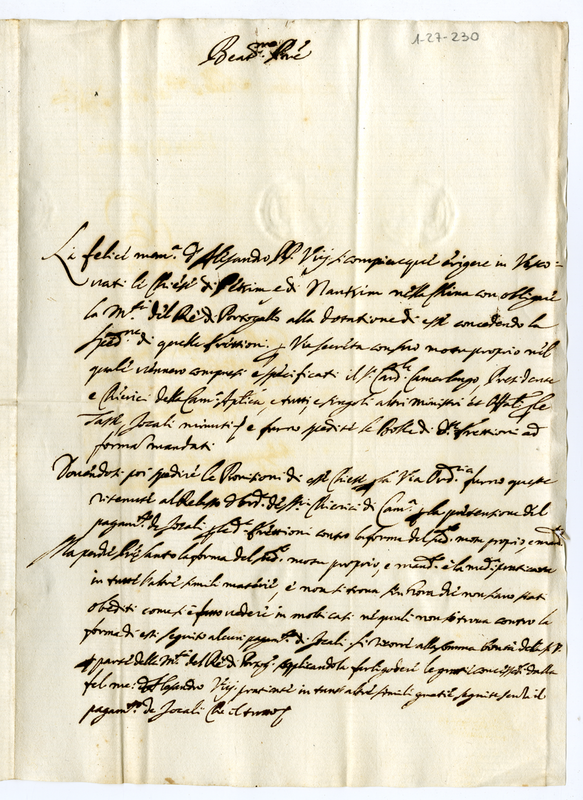 1-27-230
Beat.mo Pre
La felice mem.a d'Alesandro PP. VIIJ si compiacque erigere in Vesco-
vati le Chiese di Pekim e di Nankim nella China con obligare
la M.tà del Re di Portogallo alla dotatione di esse concedendo la
sped.ne di quelle Erettioni p Via secreta con suo moto proprio nel
quale vennero compresi e specificati il S. Card.le Camerlengo, Presidente
e Chierici della Cam.a Aplica, e tutti, e singoli altri Ministri et Offitiali p le
Tasse Jocali minuti e furno spedite le Bolle di d.e Erettioni ad
forma mandati
Dovendosi poi spedire le Provisioni di esse Chiese p la Via Ord.ria furno queste
ritenute di Chierici di Cam.a p la pretensione del
pagam.to de Jocali p le d.e Erettioni contro la forma del sud.o moto proprio, e mand.o
Ma perche la forma del sud.o moto proprio, e mand.o è la med.a praticata
in tutte l'altre simili materie, e non si trova che non siano stati
obediti come si è fatto vedere in molti casi ne quali non si trova contro la
forma di essi seguito alcun pagam.to di Jocali si ricorre alla somma bontà della S. V.
p parte della M.tà del Re di Portog.o supplicandola farli godere le gratie concesseli dalla
fel. me. d'Alesandro VIIJ. praticate in tutte altre simili gratie seguite senza il
pagam.to de Jocali Che il tutto